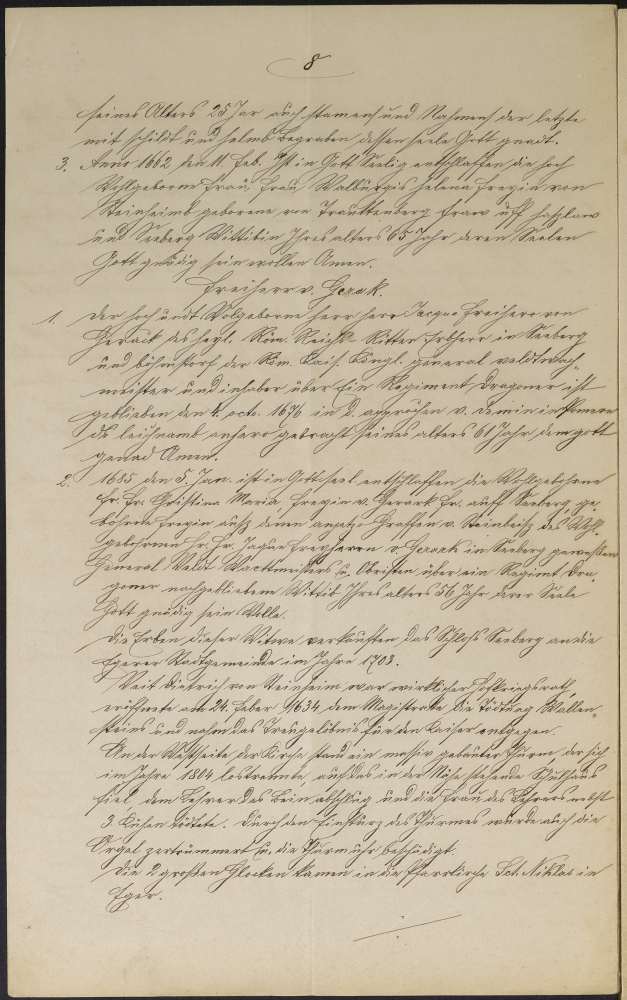 8
seines Alters 25 Jar auch stamens und Nahmens der letzte
mit schildt und helmb begraben dessen seele Gott gnadt.
3. Anno 1662 den 11. Feb. Ist in Gott Seelig entschlaffen die hoch
Wohlgeborne Frau Frau Walburgis Helena Freyin von
Steinheimb geborene von Trauttenberg fraw uff haslaw
und Seeberg Wittibin Ihres alters 65 Jahr deren Seelen
Gott gnädig sein wollen Amen.
Freiherr v. Gerak.
1. Der hoch undt Wolgeborne Herr Herr Jacque Freiherr von
Gerack des heyl. Röm. Reichs Ritter Erbherr in Seeberg
und der Röm. Kais. Köngl. general veldtwach-
meister und inhaber über Ein Regiment Dragoner ist
geblieben den 4. octo. 1676 in v. Demin in Pomern
de leichnamb anhero gebracht seines alters 61 Jahr dem gott
genad Amen.
2. 1685 den 5. Jan. ist in Gott seel. entschlaffen die Wohlgeborene
Fr. Fr. Christina Maria Freyin v. Gerark Fr. auff Seeberg, ge-
bohrne Freyin auß denen Graffen v. Steinleiß des Wohl-
gebohrnen Hr. Hr. Jaque Freyherren v. Gerark in Seeberg gewesten
General Veldt Wachtmeisters u. Obristen über ein Regimt. Dra-
goner nachgebliebene Wittib Ihres alters 56 Jahr derer Seele
Gott gnädig sein Wolle.
Die Erben dieser Witwe verkauften das Schloß Seeberg an die
Egerer Stadtgemeinde im Jahre 1703.
Veit Dietrich von Steinheim war wirklicher Hofkriegsrath,
eröffnete am 24. Feber 1634 dem Magistrate die Tödtung Wallen-
steins und nahm das Treugelöbnis für den Kaiser entgegen.
An der Westseite der Kirche stand ein massiv gebauter Thurm, der sich
im Jahre 1804 lostrennte auf das in der Nähe stehende Schulhaus
fiel, dem Lehrer das Bein abschlug und die Frau des Lehrers nebst
3 Kühen tödtete. Durch den Einsturz des Thurmes wurde auch die
Orgel zertrümmert u. die Thurmuhr beschädigt
Die 2 großen Glocken kamen in die Pfarrkirche Sct. Niklas in
Eger.